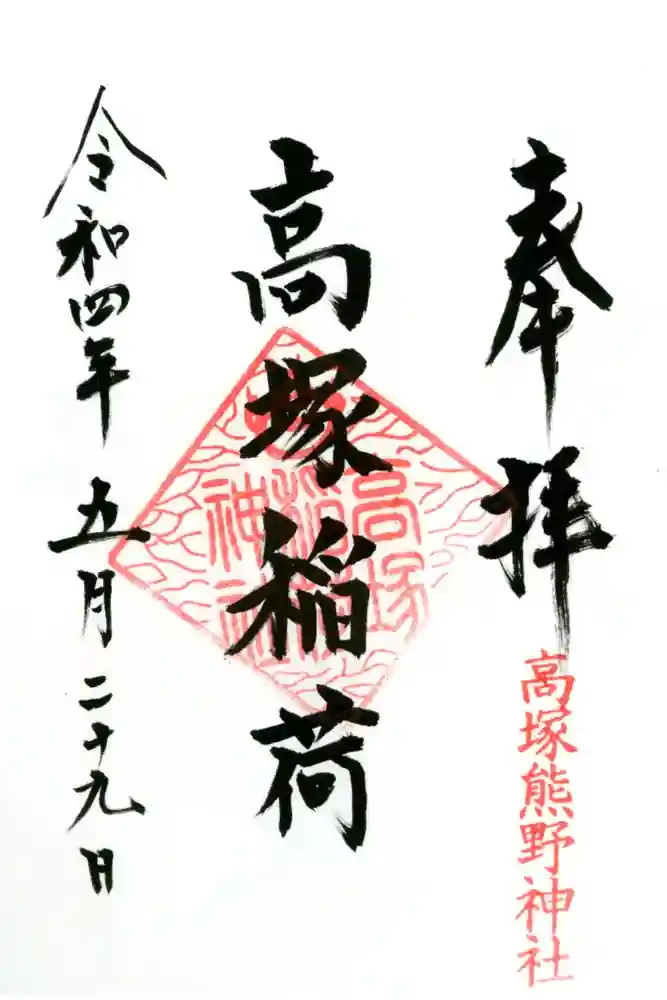 奉拝
高塚熊野神社
高塚稲荷
高塚
稲荷
神社
令和四年 五月二十九日